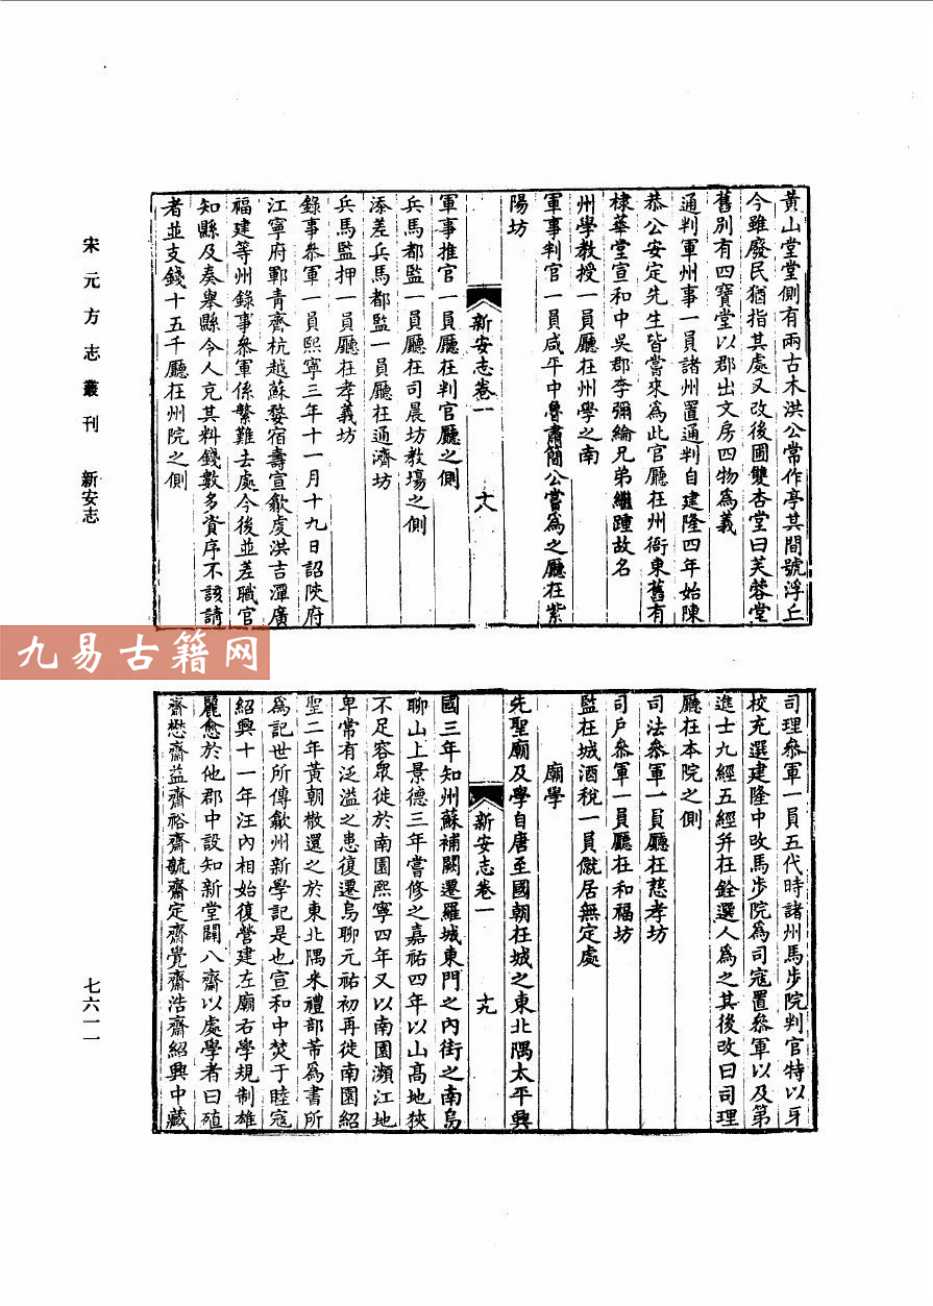 宋元方志叢刊 新安志
七六一一
黃山堂堂側有兩古木洪公常作亭其間號浮丘
今雖廢民猶指其處又改後圃雙杏堂曰芙蓉堂
舊別有四寶堂以郡出文房四物為義
通判軍州事一員諸州置通判自建隆四年始陳
恭公安定先生皆嘗來為此官廳在州衙東舊有
棣華堂宣和中吳郡李彌綸兄弟繼踵故名
州學教授一員廳在州學之南
軍事判官一員咸平中魯肅簡公嘗為之廳在紫
陽坊
新安志卷一 十八
軍事推官一員廳在判官廳之側
兵馬都監一員廳在司晨坊教場之側
添差兵馬都監一員廳在通濟坊
兵馬監押一員廳在孝義坊
錄事參軍一員熙寧三年十一月十九日詔陝府
江寧府鄆青齊杭越蘇婺宿壽宣歙虔洪吉潭廣
福建等州錄事參軍係繁難去處今後並差職官
知縣及奏舉縣令人充其料錢數多資序不該請
者並支錢十五千廳在州院之側
司理參軍一員五代時諸州馬步院判官特以牙
校充選建隆中改馬步院為司寇置參軍以及第
進士九經五經并在銓選人為之其後改曰司理
廳在本院之側
司法參軍一員廳在慈孝坊
司戶參軍一員廳在和福坊
監在城酒稅一員僦居無定處
廟學
先聖廟及學自唐至國朝在城之東北隅太平興
新安志卷一 十九
國三年知州蘇補闕遷羅城東門之內街之南烏
聊山上景德三年嘗修之嘉祐四年以山高地狹
不足容眾徙於南園熙寧四年又以南園瀕江地
卑常有泛溢之患復遷烏聊元祐初再徙南園紹
聖二年黃朝散還之於東北隅米禮部芾為書所
為記世所傳歙州新學記是也宣和中焚于睦寇
紹興十一年汪內相始復營建左廟右學規制雄
麗愈於他郡中設知新堂闢八齋以處學者曰殖
齋懋齋益齋裕齋毓齋定齋覺齋浩齋紹興中藏
九易古籍网